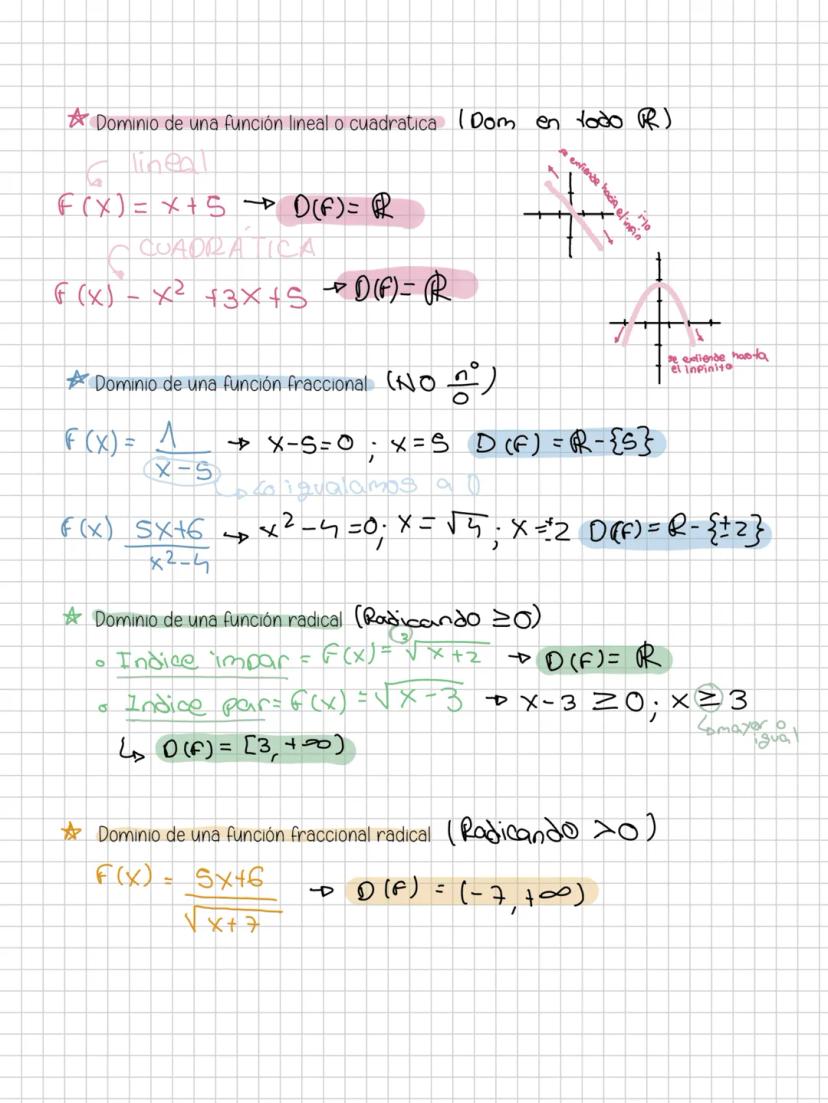 ☆ Dominio de una función lineal o cuadratica (Dom en todo ℝ)
lineal
F(x) = x+5 → D(F) = ℝ
se extiende hacia el infinito
CUADRÁTICA
F(x) - x² +3x+5 → D(F) = ℝ
se extiende hasta
el infinito
☆ Dominio de una función fraccional (NO nº/0)
F(x) = 1/(x-5) → x-5=0 ; x=5 D(F) = ℝ-{5}
↳ Lo igualamos a 0
F(x) 5x+6/(x²-4) ↪ x²-4=0; x=√4; x=±2 D(F) = ℝ-{±2}
☆ Dominio de una función radical (Radicando ≥0)
• Indice impar = F(x) = ³√x+2 → D(F) = ℝ
• Indice par = F(x) = √x-3 → x-3 ≥0; x ≥ 3
↳ mayor o
igual
↳ D(F) = [3,+∞)
☆ Dominio de una función fraccional radical (Radicando >0)
F(x) = 5x+6/√x+7 → D(F) = (-7,+∞)